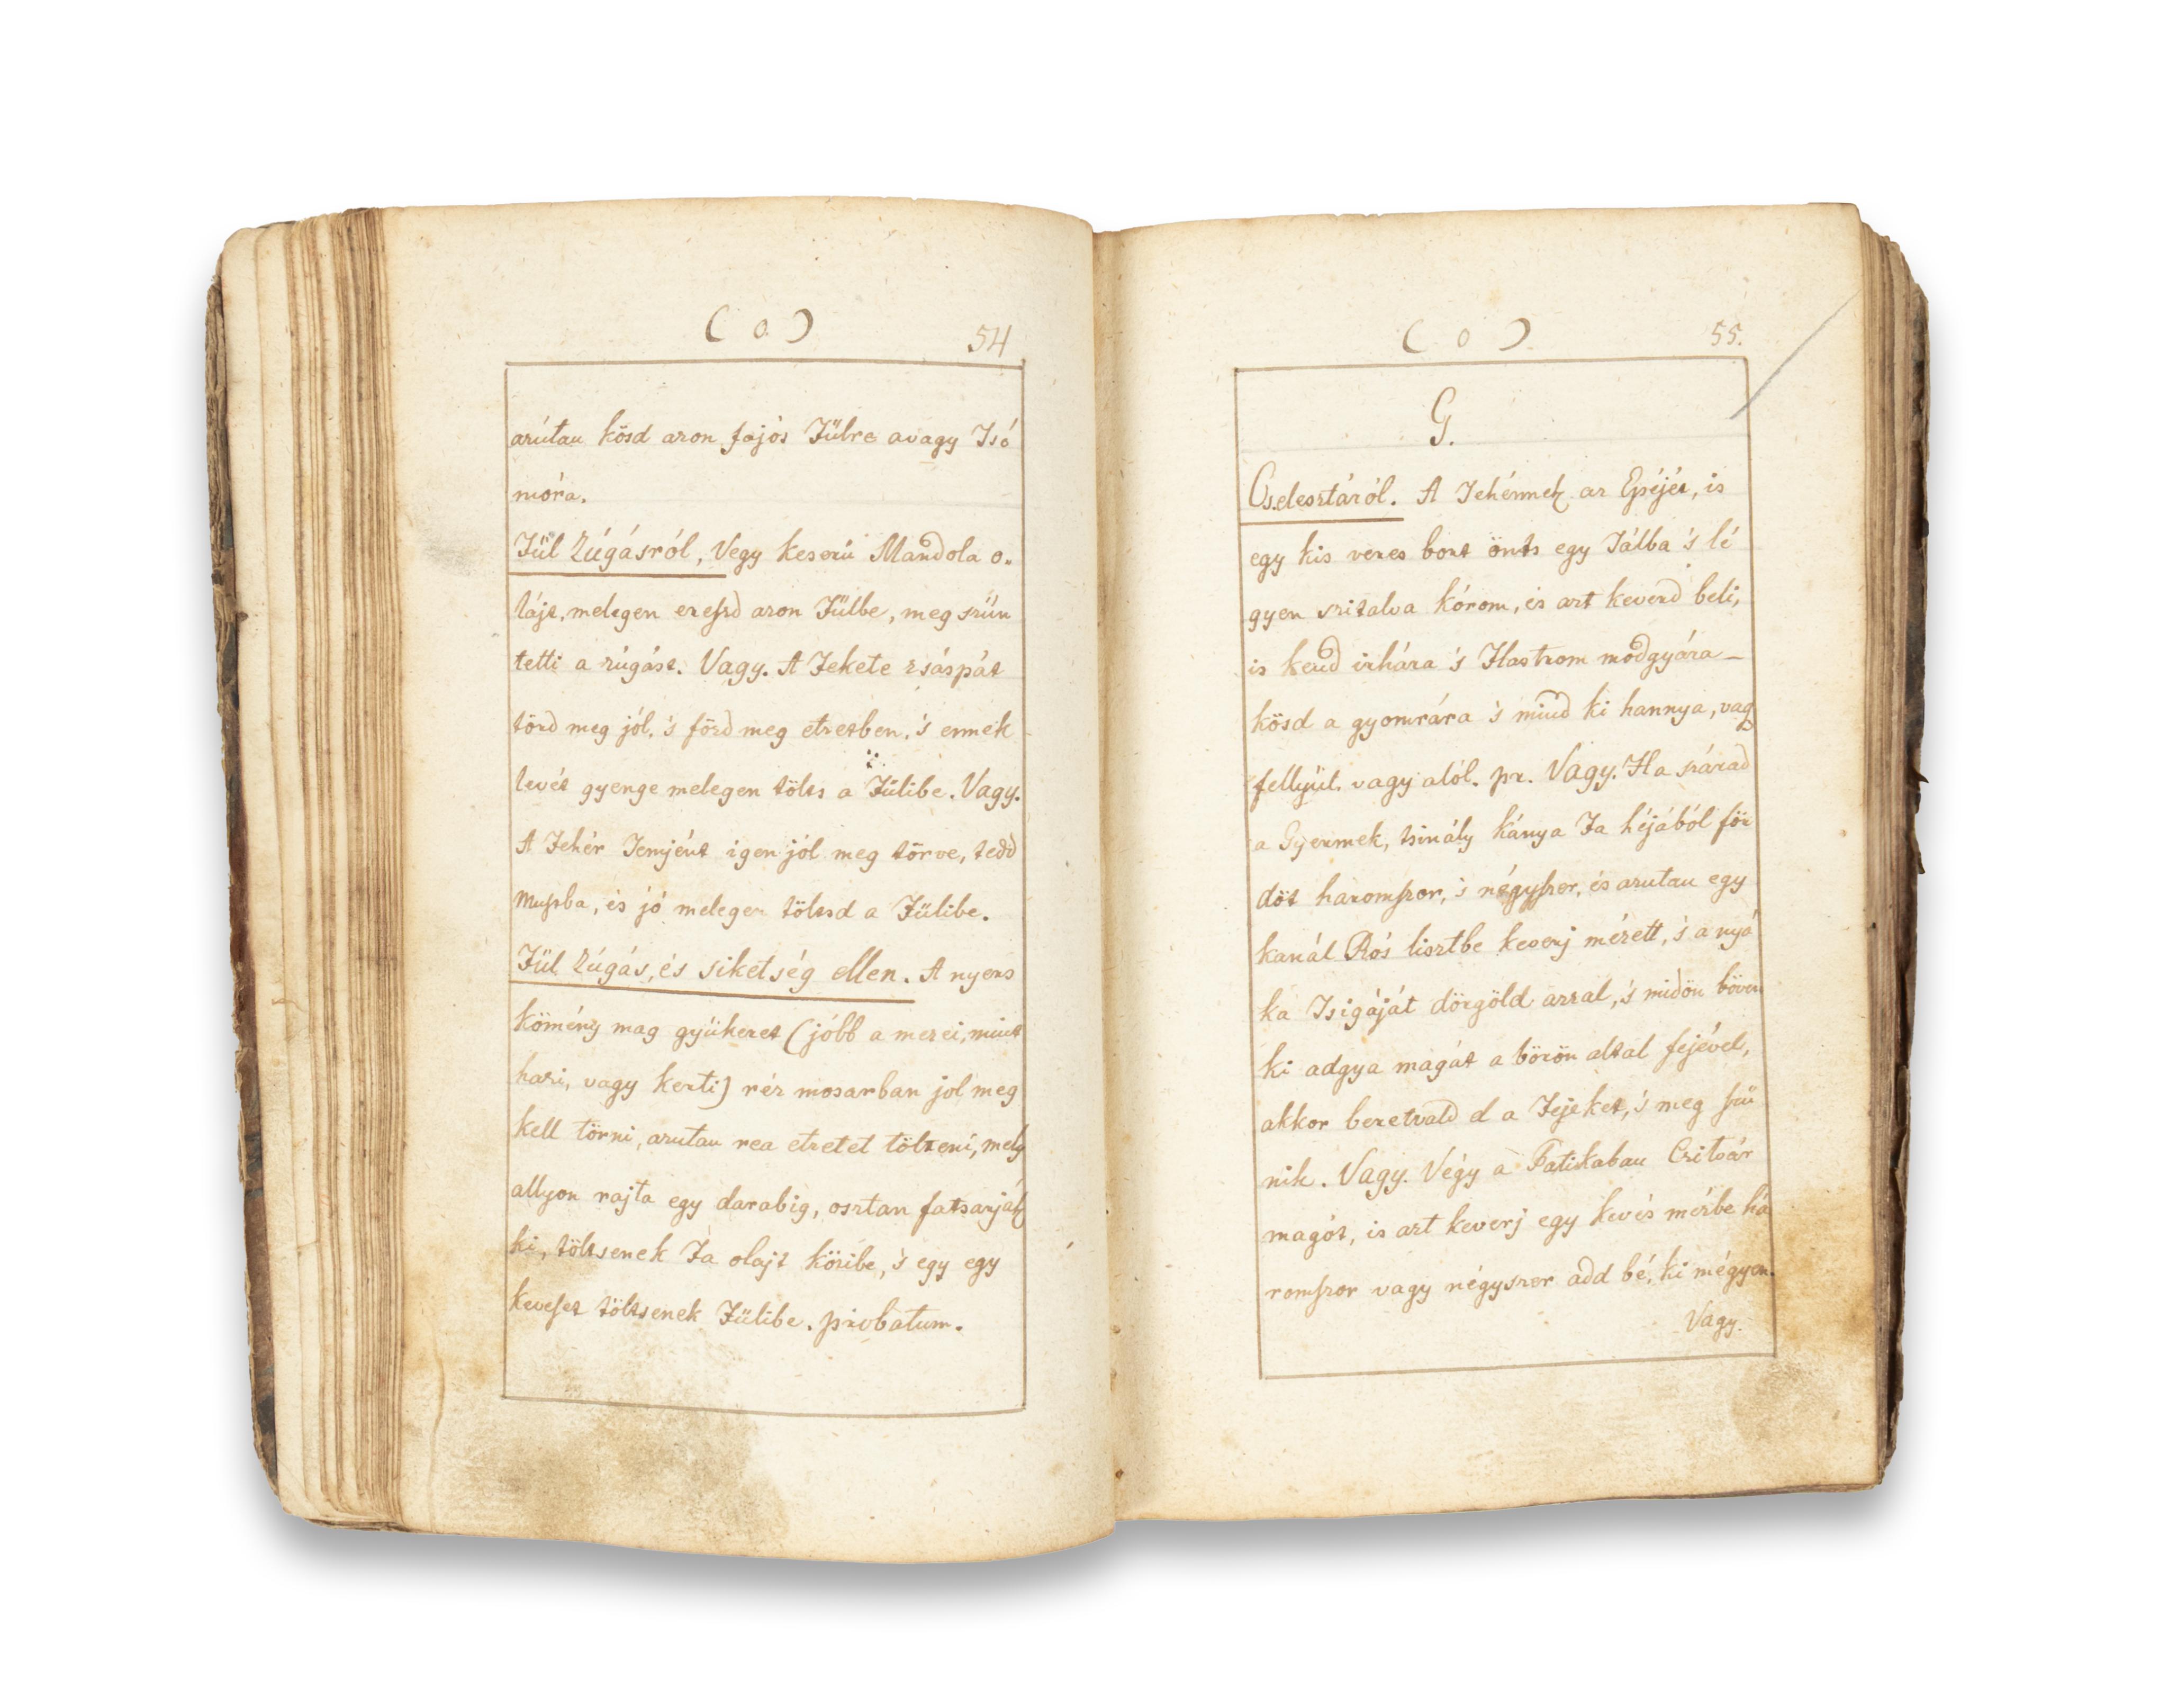 ( o )
54
azútan kösd azon fájós Fülre avagy Tsó
móra.
Fül Zúgásról, Vegy keserü Mandola o„
lájt, melegen ereszd azon Fülbe, meg szün
tetti a zúgást. Vagy. A Fekete zsáspát
törd meg jól, 's főzd meg etzetben, 's ennek
levét gyenge melegen tölts a Fülibe. Vagy.
A Fehér Temjént igen jól meg törve, tedd
Mustba, és jó melegen töltsd a Fülibe.
Fül Zúgás, és siketség ellen. A nyers
kömény mag gyükeret (jóbb a mezei, mint
hazi, vagy kerti) réz mosarban jol meg
kell törni, azutan rea etzetet tölteni, mely
allyon rajta egy darabig, osztan fatsarják
ki, töltsenek Fa olajt közibe, 's egy egy
keveset töltsenek Fülibe. probatum.
( o )
55.
G.
Gselesztáról. A Tehénnek az Epéjét, is
egy kis veres bort önts egy Tálba 's lé
gyen szitalva kórom, és azt keverd beli,
is kend irhára 's Flastrom modgyára –
kösd a gyomrára 's mind ki hannya, vagy
fellyül vagy alól. pr. Vagy. Ha szárad
a Gyermek, tsinály kánya Fa héjából för
döt haromszor, 's négyszer, és azutan egy
kanál Rós lisztbe keverj mézett, 's a nyó
ka Tsigáját dörgöld azzal, 's midön böven
ki adgya magát a börön altal fejével,
akkor beretvald d a Fejeket, 's meg szü
nik. Vagy. Végy a Patikaban Czitvár
magót, is azt keverj egy kevés mézbe há
romszor vagy négyszer add bé, ki mégyen.
Vagy.